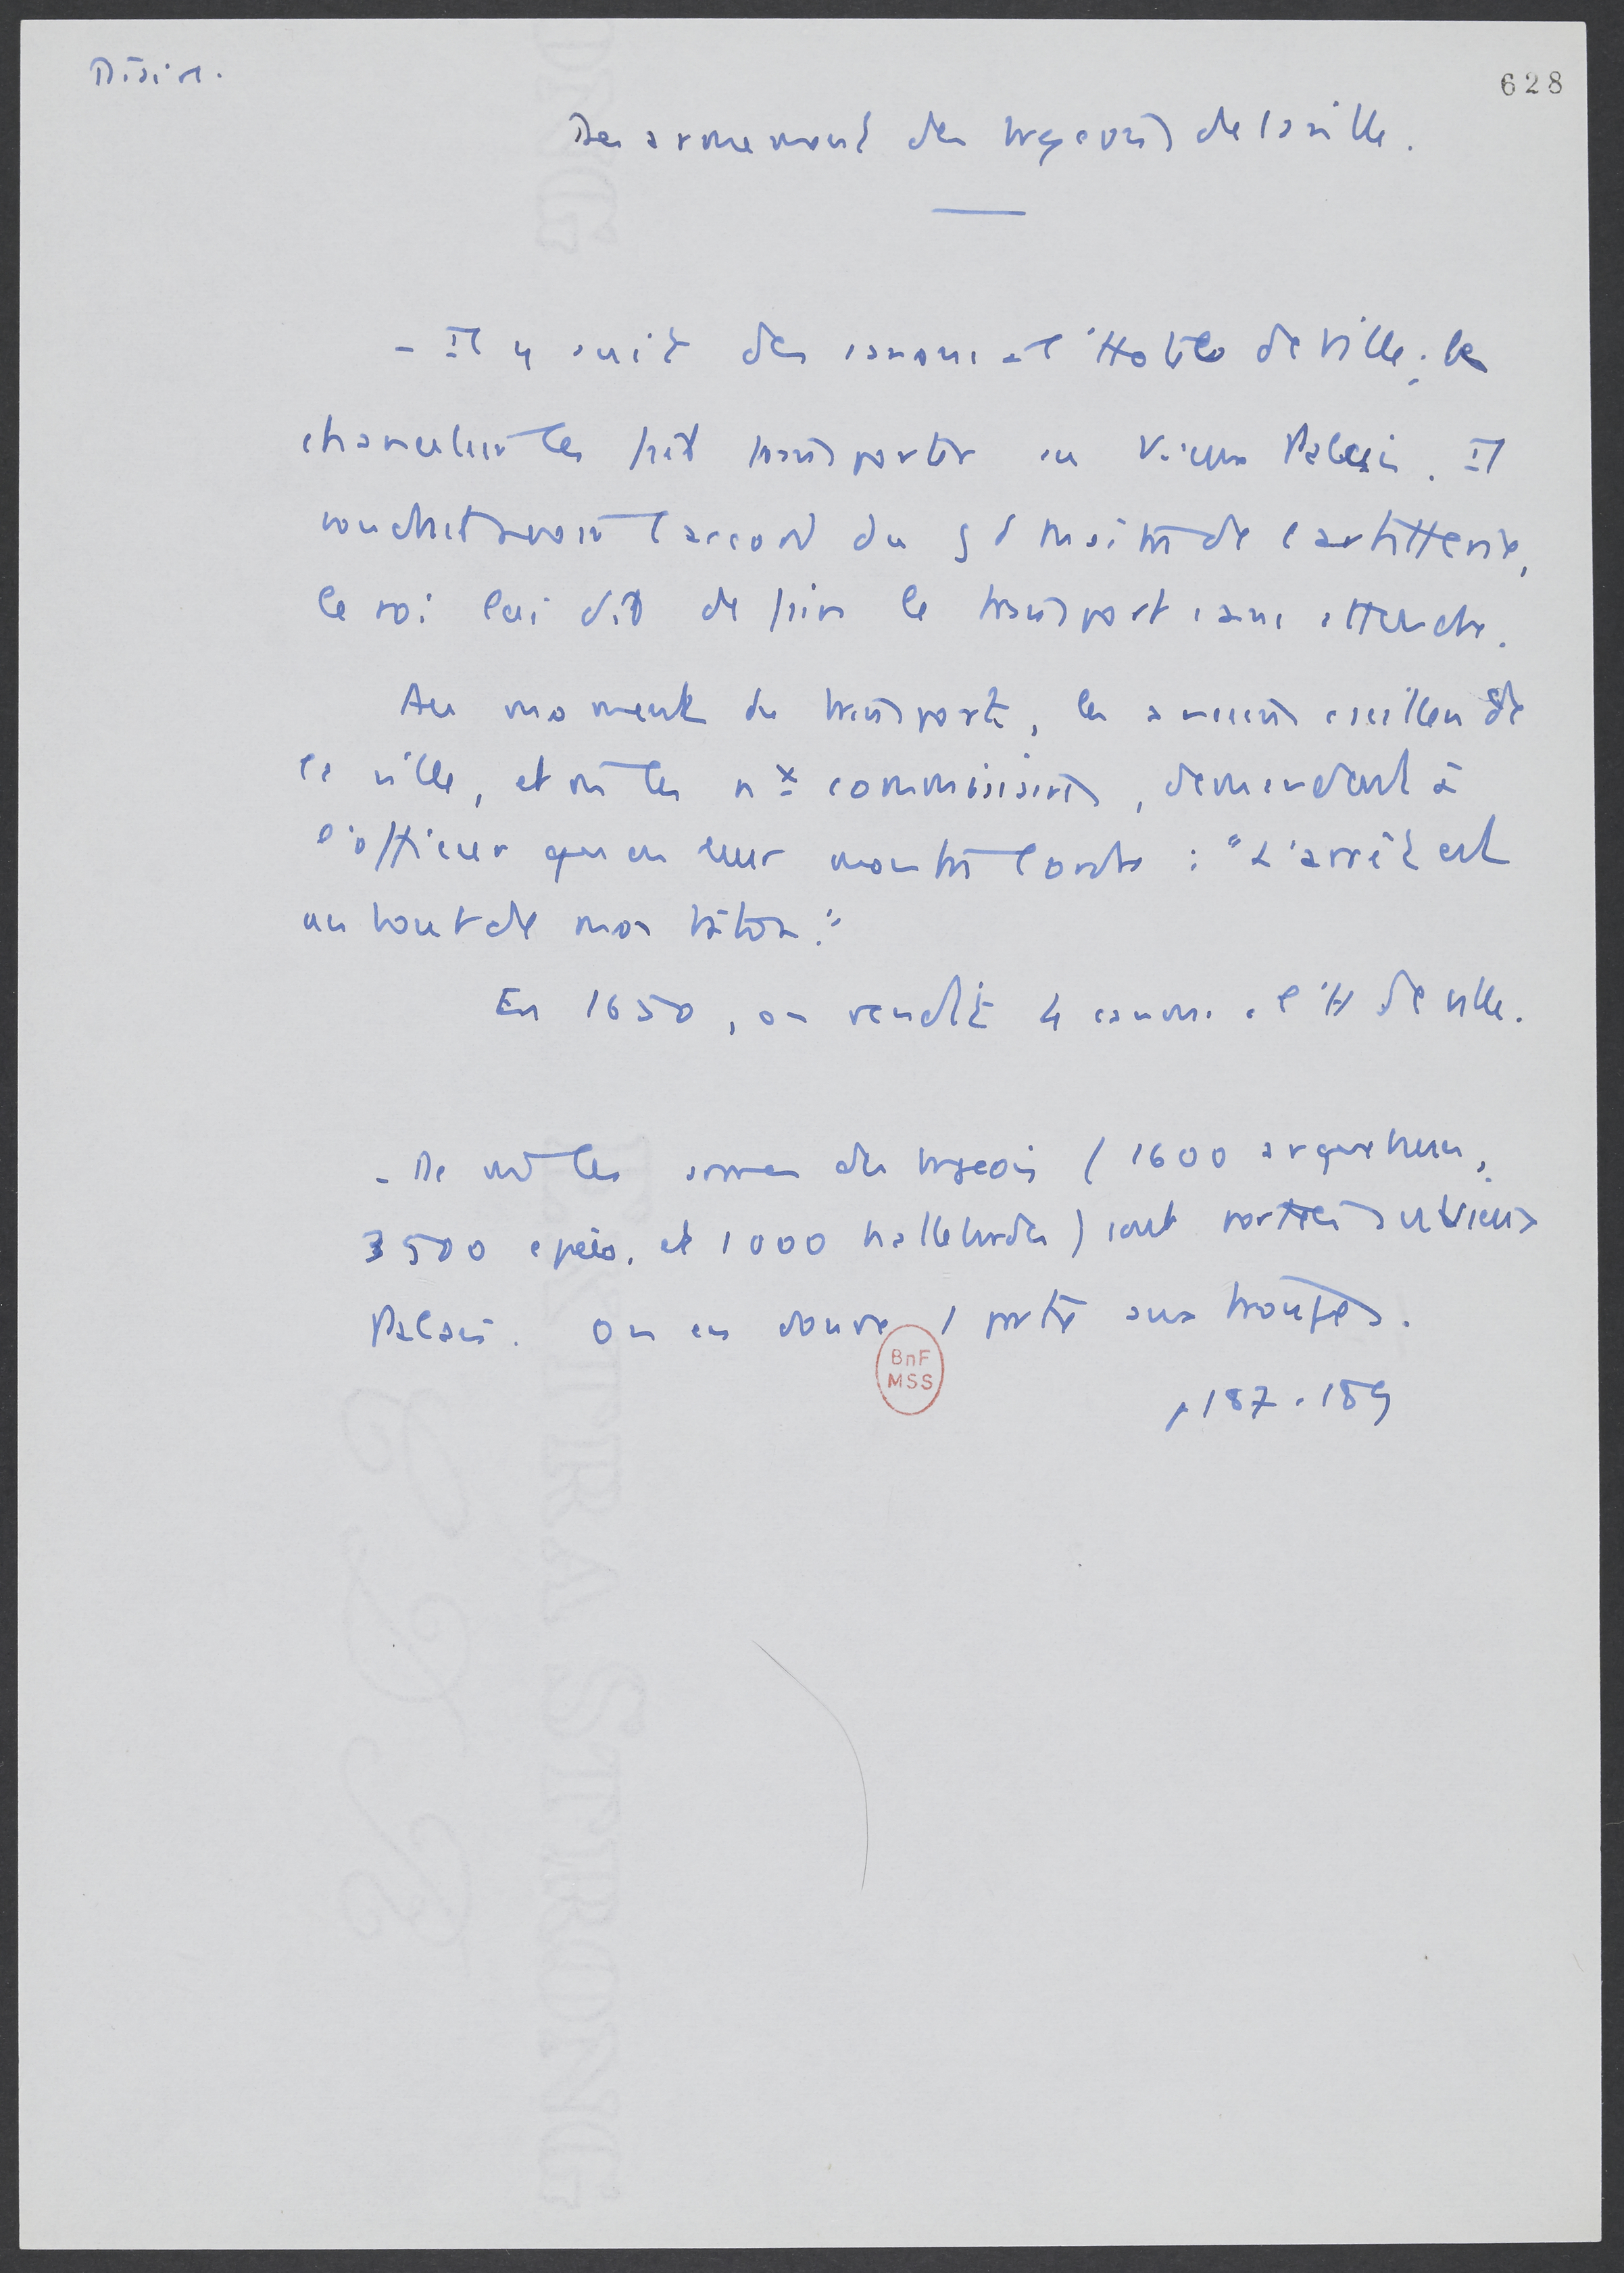 Diaire.
628
Desarmement des bourgeois de la ville.
- Il y avait des canons à l'Hotel de Ville ; le
chancelier les fait transporter au Vieux Palais. Il
voudrait avoir l'accord du gd maitre de l'artillerie,
le roi lui dit de faire le transport sans attendre.
Au moment du transport, les anciens de
la ville, et les nx commissaires, demandent à
l'officier qu'on leur montre l'ordre : "L'arrêt est
au bout de mon bâton."
En 1650, on rendit 4 canons à l'H de ville.
- De même les armes des bourgeois (1600 arquebuses,
3500 épées, et 1000 hallebardes) sont portées au Vieux
Palais. On en donne 1 partie aux troupes.
BnF
MSS
p 187-189